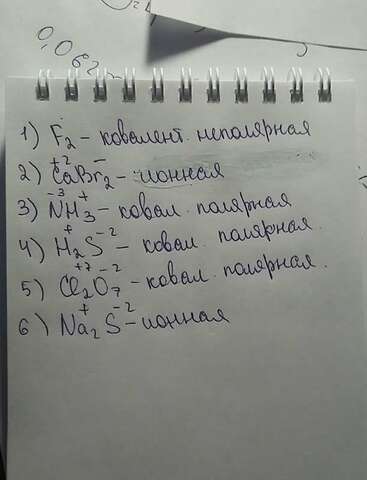 0,062
1) F₂ – ковалент. неполярная
+2 –
2) CaBr₂ – ионная
-3 +
3) NH₃ – ковал. полярная
+ -2
4) H₂S – ковал. полярная.
+7 -2
5) Cl₂O₇ – ковал. полярная.
+ -2
6) Na₂S – ионная